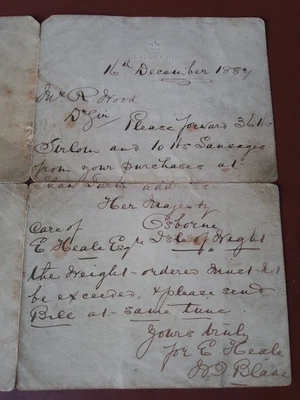 16th December 1887
Mr R Wood
Dr Sir
Please forward 36 lbs
Sirloin and 10 lbs Sausages
from your purchases at
address
Her Majesty
Osborne
Care of
E Heale Esqr Isle of Wight
the Weight ordered must not
be exceeded, & please send
Bill at same time
Yours truly
for E Heale